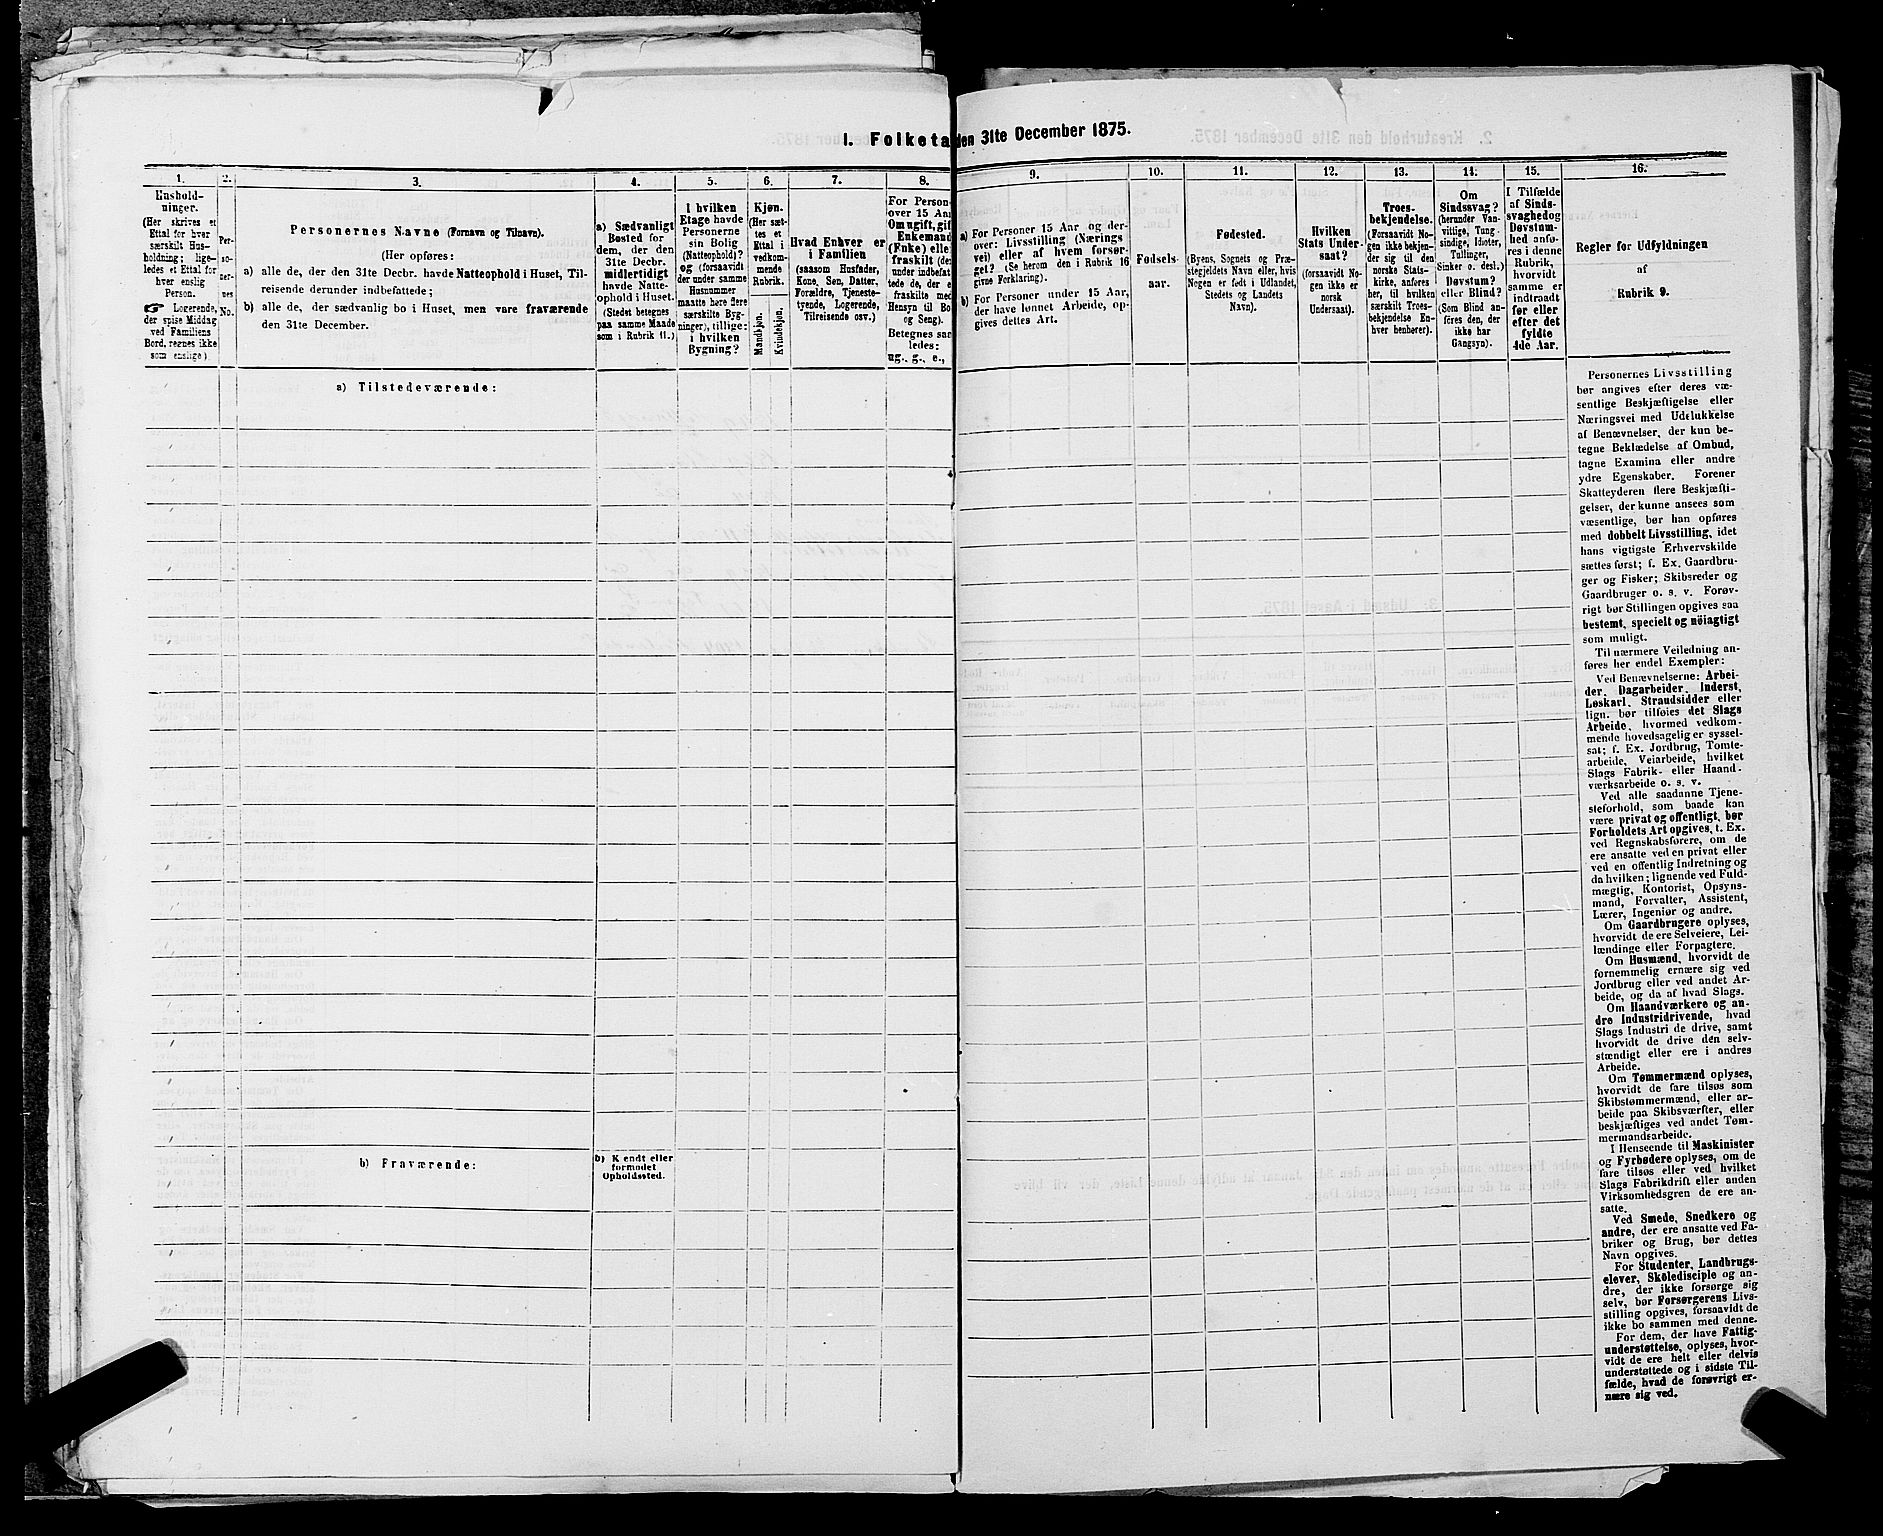 1. Folketa den 31te December 1875.
1.
Hushold-
ninger.
(Her skrives et
Ettal for hver
særskilt Hus-
holdning; lige-
ledes et Ettal for
hver enslig
Person.
☞ Logerende,
der spise Middag
ved Familiens
Bord, regnes ikke
som enslige)
2.
Per-
so-
ner-
nes
No.
3.
Personernes Navne (Fornavn og Tilnavn).
(Her opføres:
a) alle de, der den 31te Decbr. havde Natteophold i Huset, Til-
reisende derunder indbefattede;
b) alle de, der sædvanlig bo i Huset, men vare fraværende
den 31te December.
4.
a) Sædvanligt
Bosted for
dem, der den
31te Decbr.
midlertidigt
havde Natte-
ophold i Huset.
(Stedet betegnes
paa samme Maade
som i Rubrik 11.)
5.
I hvilken
Etage havde
Personerne
sin Bolig
(Natteophold)?
og (forsaavidt
der under samme
Husnummer
maatte høre flere
særskilte Byg-
ninger), tillige:
i hvilken
Bygning?
6.
Kjøn.
(Her sæt-
tes et
Ettal i
vedkom-
mende
Rubrik.
Mandkjøn.
Kvindekjøn.
7.
Hvad Enhver er
i Familien
(saasom Husfader,
Kone, Søn, Datter,
Forældre, Tjeneste-
tyende, Logerende,
Tilreisende osv.)
8.
For Person
over 15 Aar
Om ugift, gif
Enkemand
(Enke) elle
fraskilt (de
under indbefat
tede de, der e
fraskilte med
Hensyn til Bo
og Seng).
Betegnes saa
ledes:
ug., g., e.,
9.
a) For Personer 15 Aar og der-
over: Livsstilling (Nærings
vei) eller af hvem forsør-
get? (Se herom den i Rubrik 16
givne Forklaring).
b) For Personer under 15 Aar,
der have lønnet Arbeide, op-
gives dettes Art.
10.
Fødsels-
aar.
11.
Fødested.
(Byens, Sognets og Præ-
stegjeldets Navn eller, hvis
Nogen er født i Udlandet,
Stedets og Landets
Navn).
12.
Hvilken
Stats Under-
saat?
(forsaavidt No-
gen ikke er
norsk
Undersaat).
13.
Troes-
bekjendelse.
(Forsaavidt No-
gen ikke bekjen-
der sig til den
norske Stats-
kirke, anføres
her, til hvilken
særskilt Troes-
bekjendelse En-
hver benhører).
14.
Om
Sindssvag?
(herunder Van-
vittige, Tung
sindige, Idioter,
Tullinger,
Sinker o. desl.)
Døvstum?
eller Blind?
(Som Blind an-
føres den, der
ikke har
Gangsyn).
15.
I Tilfælde
af Sinds-
svaghed og
Døvstum-
hed anfø-
res i denne
Rubrik,
hvorvidt
samme er
indtraadt
før eller
efter det
fyldte
4de Aar.
16.
Regler for Udfyldningen
af
Rubrik 9.
a) Tilstedeværende:
b) Fraværende:
b) Kjendt eller
formodet
Opholdssted.
Personernes Livsstilling
bør angives efter deres væ-
sentlige Beskjæftigelse eller
Næringsvei med Udelukkelse
af Benævnelser, der kun be-
tegne Beklædelse af Ombud,
tagne Examina eller andre
ydre Egenskaber. Forener
Skatteyderen flere Beskjæfti-
gelser, der kunne ansees som
væsentlige, bør han opføres
med dobbelt Livsstilling, idet
hans vigtigste Erhvervskilde
sættes først; f. Ex. Gaardbru-
ger og Fisker; Skibsreder og
Gaardbruger o. s. v. Forøv-
rigt bør Stillingen opgives saa
bestemt, specielt og nöiagtigt
som muligt.
Til nærmere Veiledning an-
føres her endel Exempler:
Ved Benævnelserne: Arbei-
der, Dagarbeider, Inderst,
Løskarl, Strandsidder eller
lign. bør tilføies det Slags
Arbeide, hvormed vedkom-
mende hovedsagelig er syssel-
sat; f. Ex. Jordbrug, Tomte-
arbeide, Veiarbeide, hvilket
Slags Fabrik- eller Haand-
værksarbeide o. s. v.
Ved alle saadanne Tjene-
steforhold, som baade kan
være privat og offentligt, bør
Forholdets Art opgives, t. Ex.
ved Regnskabsførere, om de
ere ansatte ved en privat eller
ved en offentlig Indretning og
da hvilken; lignende ved Fuld-
mægtig, Kontorist, Opsyns-
mand, Forvalter, Assistent,
Lærer, Ingeniør og andre.
Om Gaardbrugere oplyses,
hvorvidt de ere Selveiere, Lei-
lændinge eller Forpagtere.
Om Husmænd, hvorvidt de
fornemmelig ernære sig ved
Jordbrug eller ved andet Ar-
beide, og da af hvad Slags.
Om Haandværkere og an-
dre Industridrivende, hvad
Slags Industri de drive, samt
hvorvidt de drive den selv-
stændigt eller ere i andres
Arbeide.
Om Tømmermænd oplyses,
hvorvidt de fare tilsøs som
Skibstømmermænd, eller ar-
beide paa Skibsværfter, eller
beskjæftiges ved andet Tøm-
mermandsarbeide.
I Henseende til Maskinister
og Fyrbødere oplyses, om de
fare tilsøs eller ved hvilket
Slags Fabrikdrift eller anden
Virksomhedsgren de ere an-
satte.
Ved Smede, Snedkere og
andre, der ere ansatte ved Fa-
briker og Brug, bør dettes
Navn opgives.
For Studenter, Landbrugs-
elever, Skoledisciple og an-
dre, der ikke forsørge sig
selv, bør Forsørgerens Livs-
stilling opgives, forsaavidt de
ikke bo sammen med denne.
For dem, der have Fattig-
understøttelse, oplyses, hvor-
vidt de ere helt eller delvis
understøttede og i sidste Til-
fælde, hvad de forøvrigt er-
nære sig ved.